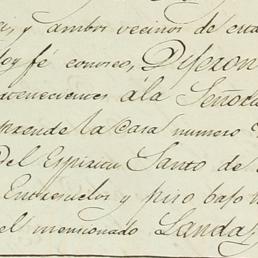 y ambos vecinos de esta
doy fé conosco, Dijeron
pertenecientes á la Señora
prende la casa numero
Del Espiritu Santo de
Entresuelos y piso bajo
el mencionado Landa